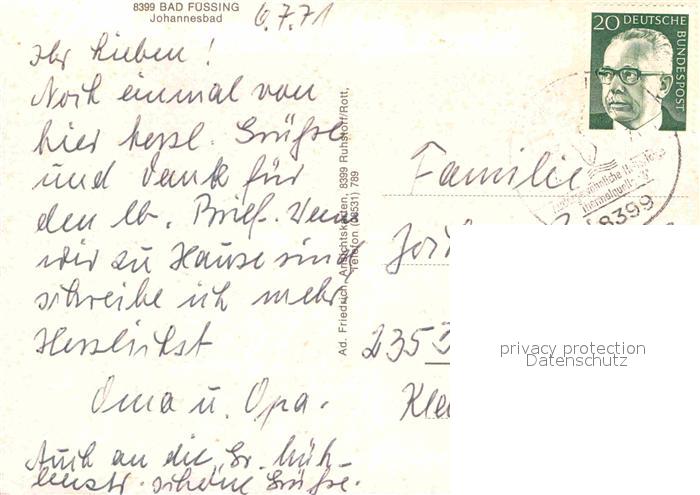 8399 BAD FÜSSING
Johannesbad
6.7.71
Ihr Lieben!
Noch einmal von
hier herzl. Grüße
und dank für
den lb. Brief. Wenn
wir zu Hause sind
schreibe ich mehr
Herzlichst
Oma u. Opa.
Auch an die Gr. Müh-
lenstr. schöne Grüße.
Ad. Friedrich, Ansichtskarten, 8399 Ruhstorf/Rott,
Telefon (08531) 789
20 DEUTSCHE
BUNDESPOST
8399
Familie
2353
privacy protection
Datenschutz